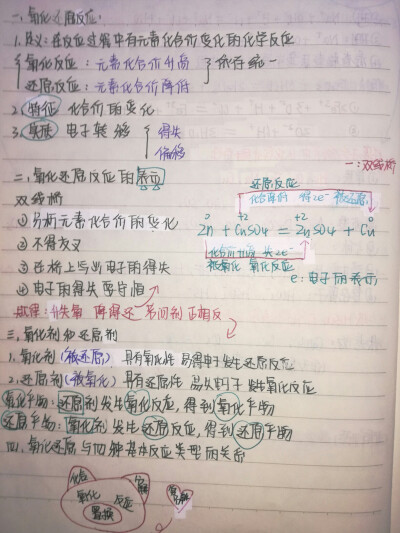 一、氧化还原反应:
1.定义:在反应过程中有元素化合价变化的化学反应
氧化反应:元素化合价升高
还原反应:元素化合价降低
依存统一
2.特征 化合价的变化
3.实质 电子转移
得失
偏移
二、氧化还原反应的表示
一:双线桥
双线桥
还原反应
化合价降低 得2e⁻ 被还原
①分析元素化合价的变化
0 +2 +2 0
Zn + CuSO4 = ZnSO4 + Cu
②不得交叉
化合价升高 失2e⁻
③在桥上写出电子的得失
被氧化 氧化反应
e:电子的表示
④电子的得失要守恒
规律:升失氧 降得还 若问剂正相反
三、氧化剂和还原剂
1.氧化剂(被还原) 具有氧化性 易得电子发生还原反应
2.还原剂(被氧化)具有还原性 易失电子 发生氧化反应
氧化产物:还原剂发生氧化反应,得到氧化产物
还原产物:氧化剂发生还原反应,得到还原产物
四、氧化还原与四种基本反应类型的关系
化合
分解
氧化
反应
置换
复分解